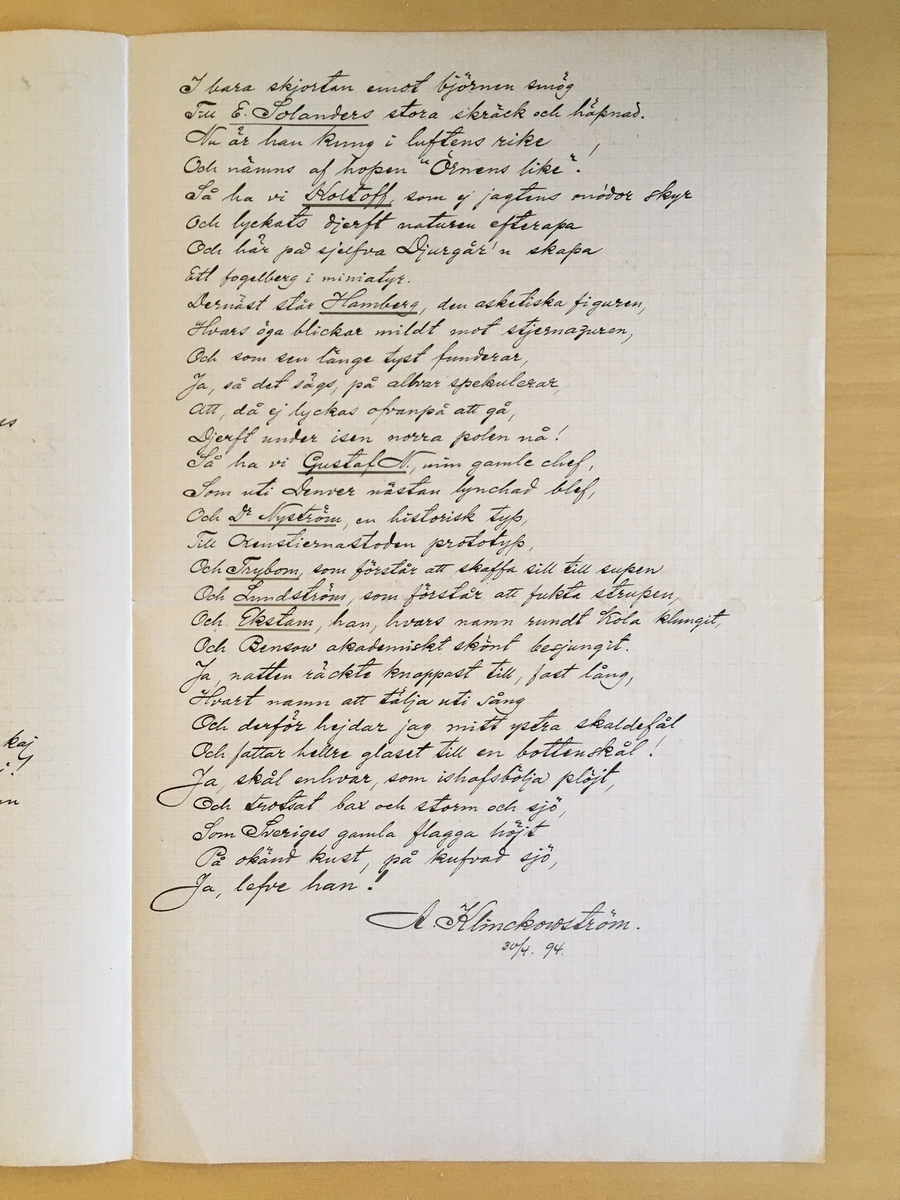 I bara skjortan emot björnen smög
Till E. Solanders stora skräck och häpnad.
Nu är han kung i luftens rike
Och nämns af hopen "Örnens like"!
Så ha vi Kolthoff, som ej jagtens mödor skyr
Och lyckats djerft naturen efterapa
Och här på sjelfva Djurgår'n skapa
Ett fogelberg i miniatyr.
Dernäst står Hamberg, den asketiska figuren,
Hvars öga blickar mildt mot stjernazuren,
Och som sen länge tyst funderar,
Ja, så det sägs, på allvar spekulerar,
Att, då ej lyckas ofvanpå att gå,
Djerft under isen norra polen nå!
Så ha vi Gustaf N., min gamle chef,
Som uti Denver nästan lynchad blef,
Och Dr Nyström, en historisk typ,
Till Oxenstiernastoden prototyp,
Och Trybom, som förstår att skaffa sill till supen
Och Lundström, som förstår att fukta strupen,
Och Ekstam, han, hvars namn rundt Kola klungit,
Och Bensow akademiskt skönt besjungit.
Ja, natten räckte knappast till, fast lång,
Hvart namn att tälja uti sång
Och derför hejdar jag mitt ystra skaldefål
Och fattar hellre glaset till en bottenskål!
Ja, skål enhvar, som ishafsbölja plöjt,
Och trotsat bax och storm och sjö,
Som Sveriges gamla flagga höjt
På okänd kust, på kufvad sjö,
Ja, lefve han!
A Klinckowström.
30/4. 94.
kaj